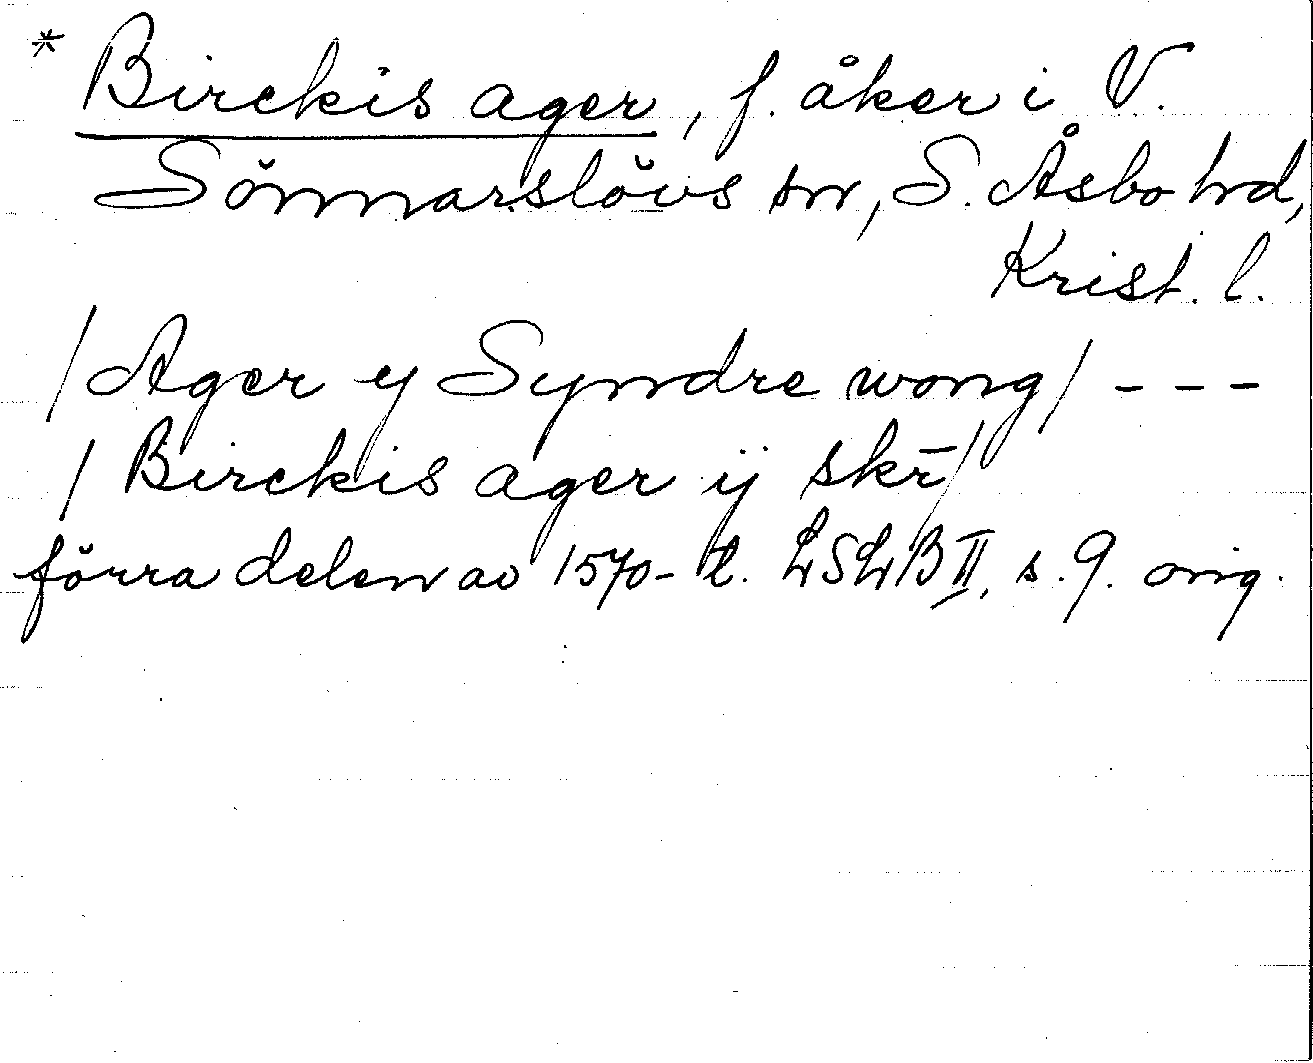 * Birckis ager, f. åker i V.
Sönnarslövs sn, S. Åsbo hd,
Krist. l.
/ Ager y Syndre wong / - - -
/ Birckis ager ij skr̄ /
förra delen av 1570-t. LSLB II, s. 9. orig.